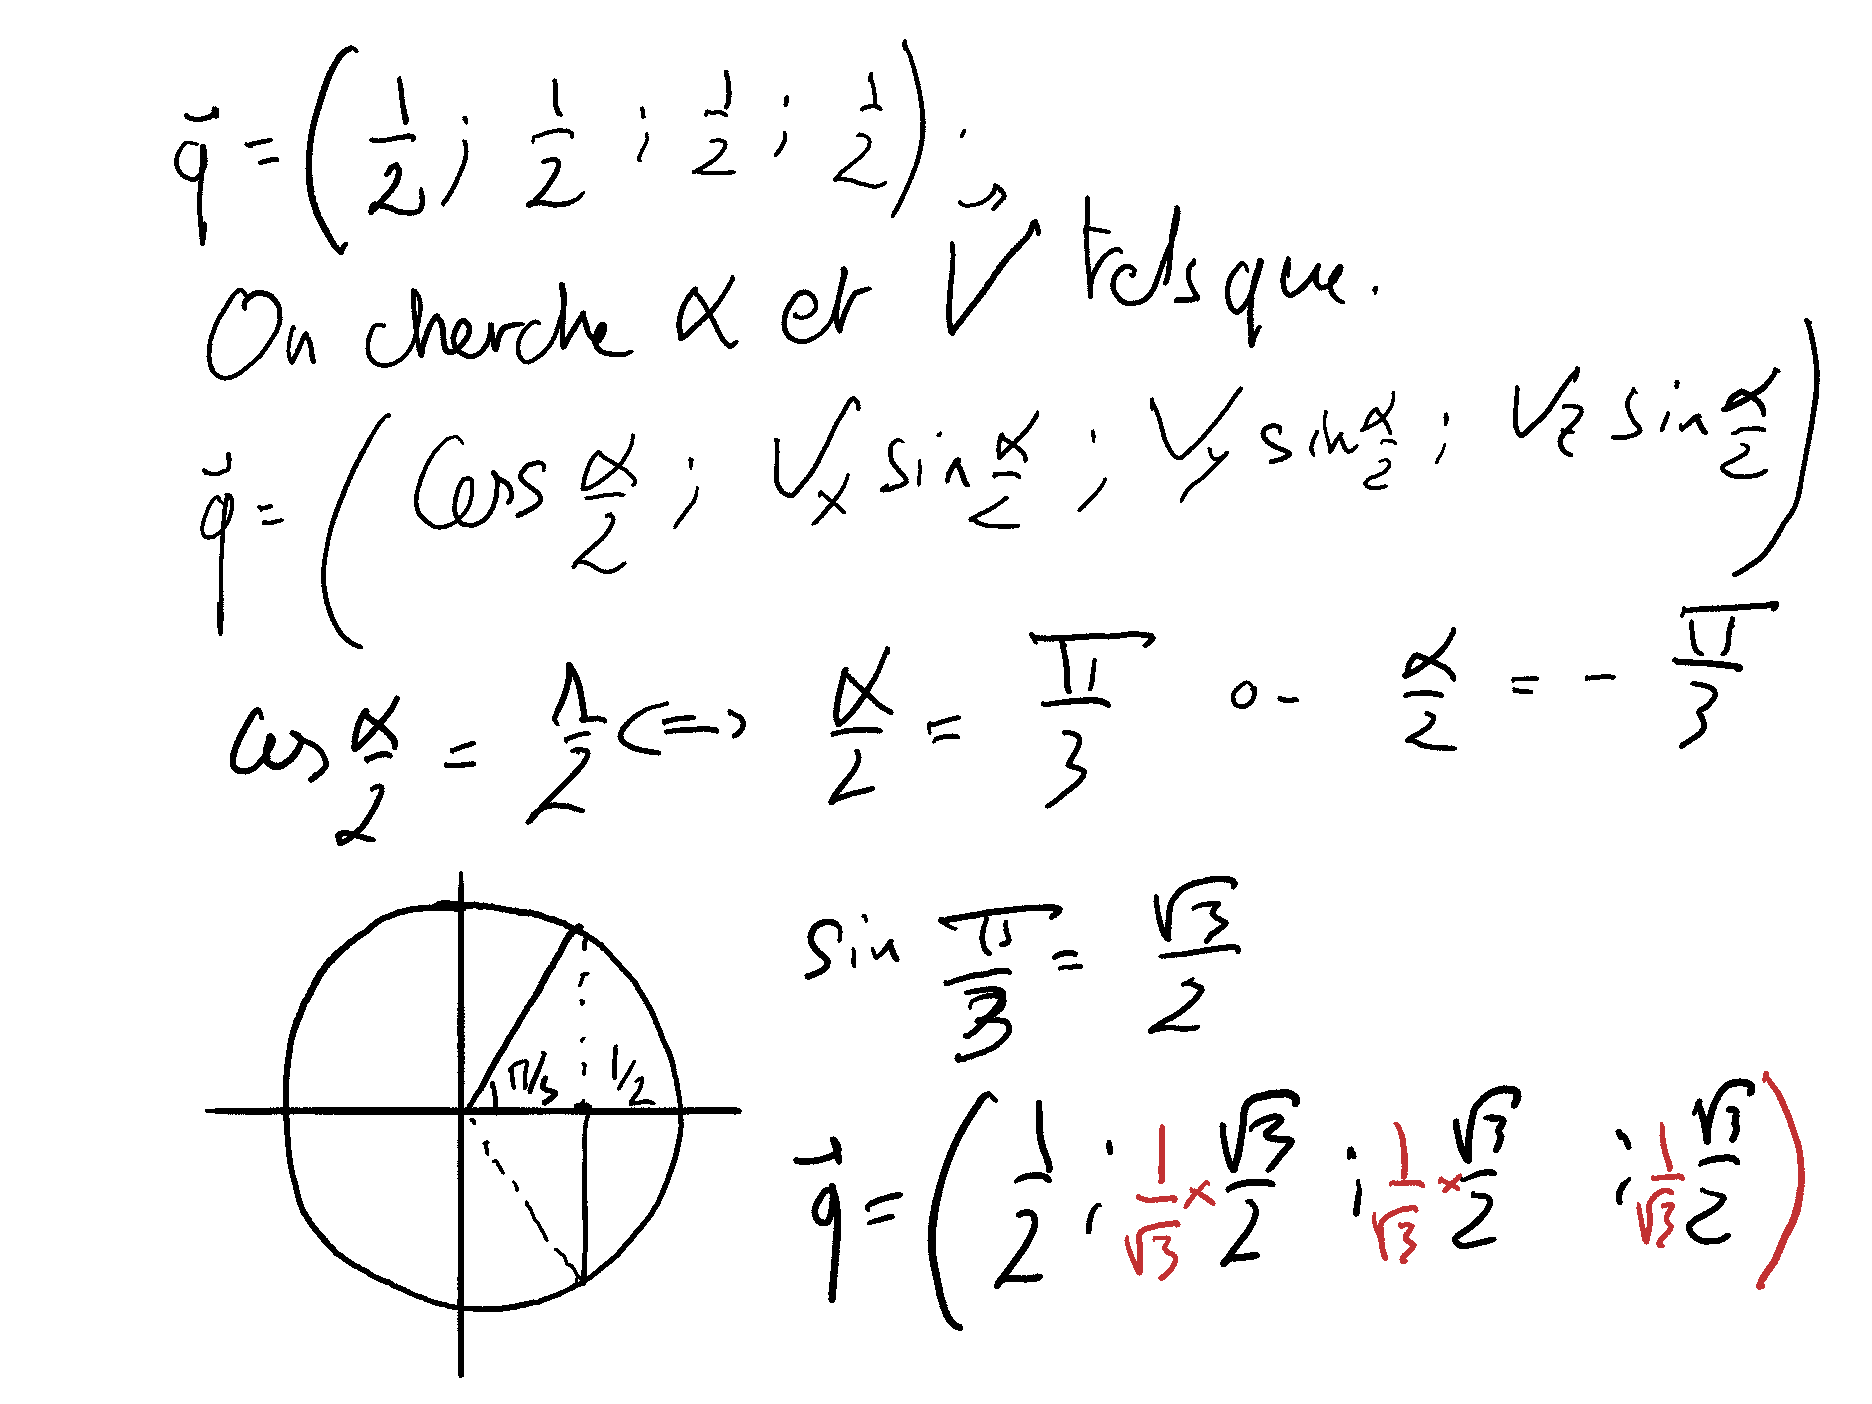 q⃗ = (1/2 ; 1/2 ; 1/2 ; 1/2).
On cherche α et V⃗ tels que.
q⃗ = (cos α/2 ; Vx sin α/2 ; Vy sin α/2 ; Vz sin α/2)
cos α/2 = 1/2 <=> α/2 = π/3 or α/2 = - π/3
sin π/3 = √3/2
π/3 1/2
q⃗ = (1/2 ; 1/√3 × √3/2 ; 1/√3 × √3/2 ; 1/√3 √3/2)